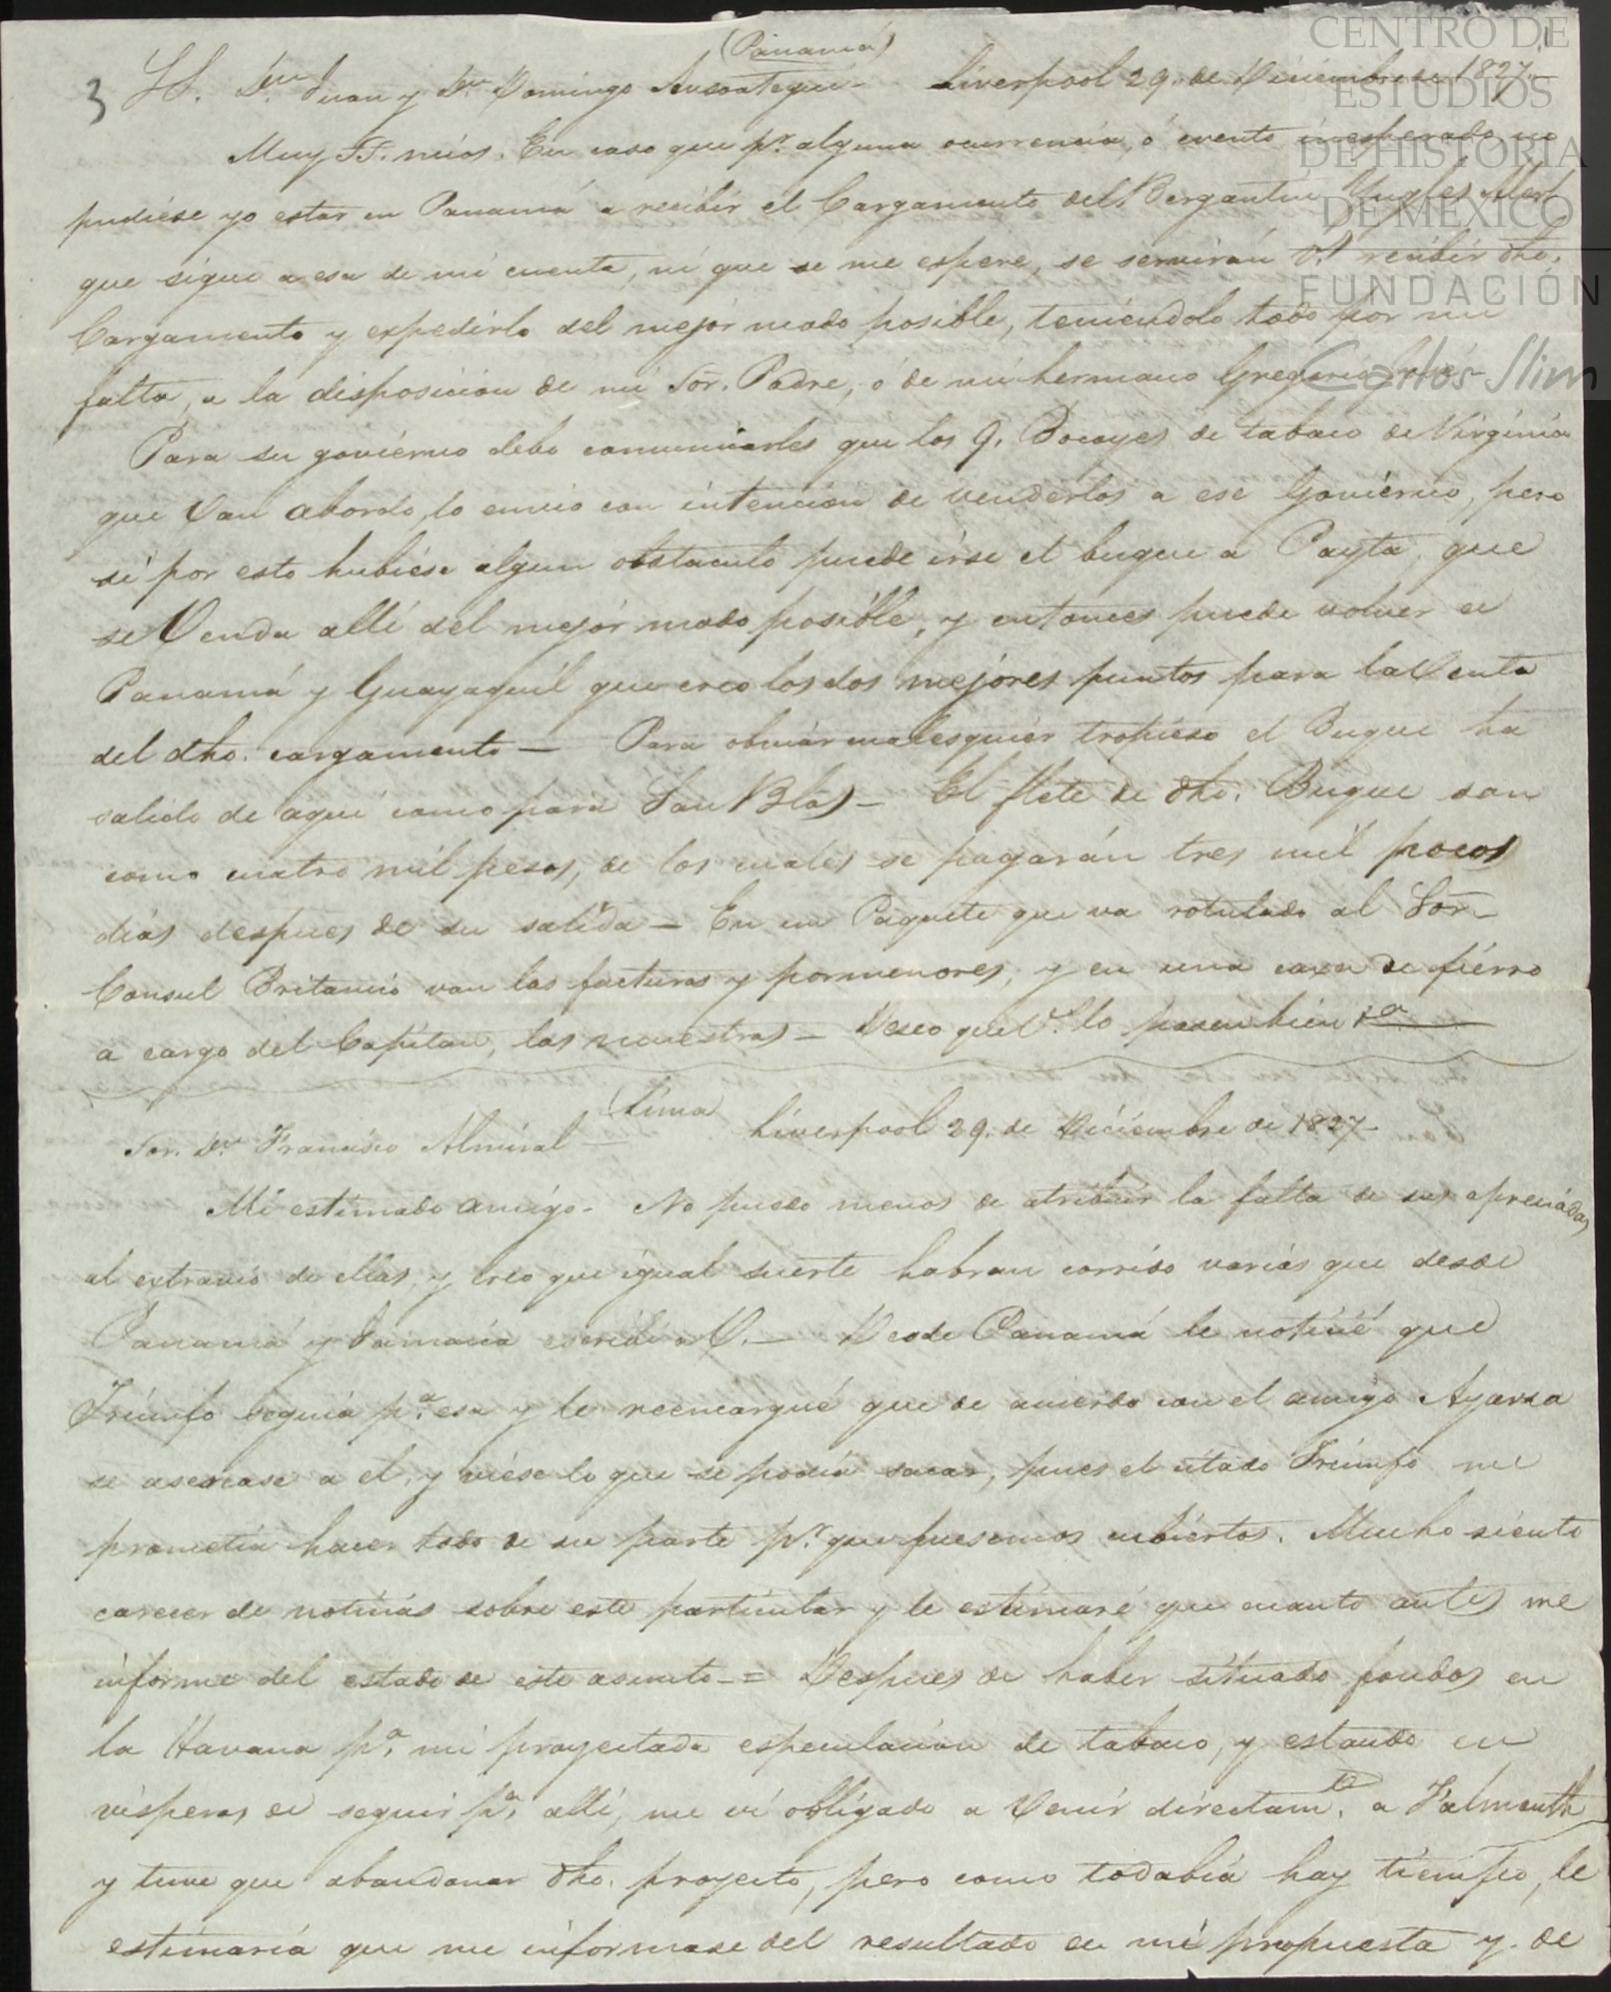 (Panamá)
3 SS. Dn. Juan y Dn. Domingo Ansoategui - Liverpool 29. de Diciembre de 1827.
Muy SS. mios. En caso que pr. alguna ocurrencia, ó evento inesperado no
pudiese yo estar en Panamá a recibir el Cargamento del Bergantin Yngles
que sigue a esa de mi cuenta, ni que se me espere, se servirán Vs. recibir dho.
Cargamento y expedirlo del mejor modo posible, teniendolo todo por mi
falta, a la disposicion de mi Sor. Padre, ó de mi hermano Gregorio
Para su govierno debo comunicarles que los 9. Bocoyes de tabaco de Virginia
que Van abordo, lo envio con intencion de venderlos a ese Govierno, pero
si por esto hubiese algun obstaculo puede irse el buque a Payta, que
se Venda alli del mejor modo posible, y entonces puede volver a
Panamá y Guayaquil que creo los dos mejores puntos para la Venta
del dho. cargamento — Para obviar cualesquier tropieso el Buque ha
salido de aqui como para San Blas — El flete de dho. Buque son
como cuatro mil pesos, de los cuales se pagarán tres mil pocos
dias despues de su salida — En un Paquete que va rotulado al Sor.
Consul Britanico van las facturas y pormenores, y en una caxa de fierro
a cargo del Capitan, las muestras — Deseo que Vs. lo pasen bien
(Lima
Sor. Dn. Francisco Almiral — Liverpool 29. de Diciembre de 1827 -
Mi estimado amigo - No puedo menos de atribuir la falta de sus apreciadas
al extravio de ellas, y creo que igual suerte habran corrido varias que desde
Panamá y Jamaica escribi a V. — Desde Panamá le noticié que
Triunfo seguia pa. esa y le reencargué que de acuerdo con el amigo Ayarza
se asercase a el, y viese lo que se podia sacar, pues el citado Triunfo me
prometia hacer todo de su parte pr. que fuesemos cubiertos. Mucho siento
carecer de noticias sobre este particular y le estimaré que cuanto antes me
informe del estado de este asunto - = Despues de haber situado fondos en
la Havana pa. mi proyectada especulacion de tabaco, y estando en
visperas de seguir pa. alli, me vi obligado a Venir directamte. a Falmouth
y tuve que abandonar dho. proyecto, pero como todabia hay tiempo, le
estimaria que me informase del resultado de mi propuesta y de
CENTRO DE
ESTUDIOS
DE HISTORIA
DE MÉXICO
FUNDACIÓN
Carlos Slim